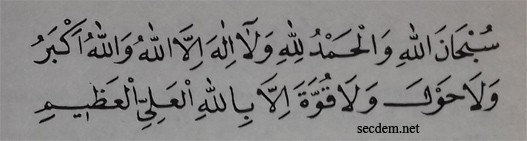 سُبْحَانَ اللهِ وَالْحَمْدُ لِلهِ وَلَا اِلٰهَ اِلَّا اللهُ وَاللهُ اَكْبَرُ
وَلَا حَوْلَ وَلَا قُوَّةَ اِلَّا بِاللهِ الْعَلِيِّ الْعَظِيمِ
secdem.net